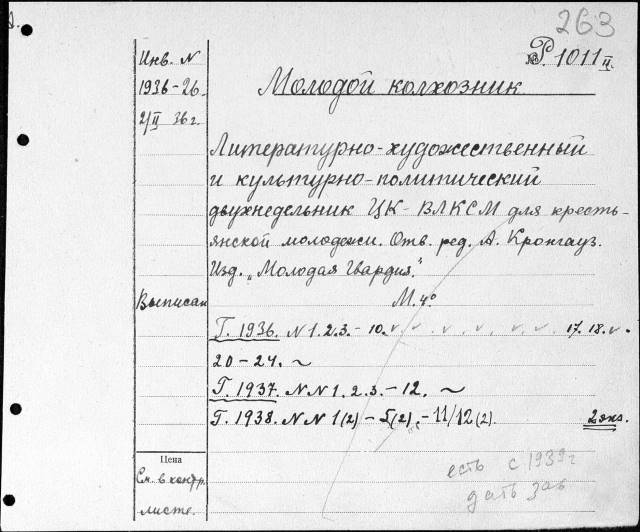 263
Р. 1011 II
Инв. N
1936-26.
2/II 36 г.
Молодой колхозник
Литературно-художественный
и культурно-политический
двухнедельник ЦК-ВЛКСМ для кресть-
янской молодежи. Отв. ред. А. Кронгауз.
Изд. „Молодая Гвардия."
Выписан
М. 4°
Г. 1936. N 1. 2. 3. - 10. 17. 18.
20-24. ~
Г. 1937. N N 1. 2. 3. - 12. ~
Г. 1938. N N 1(2) - 5(2), - 11/12 (2). 2 экз.
Цена
См. в контр.
листе.
есть с 1939 г
дать зав